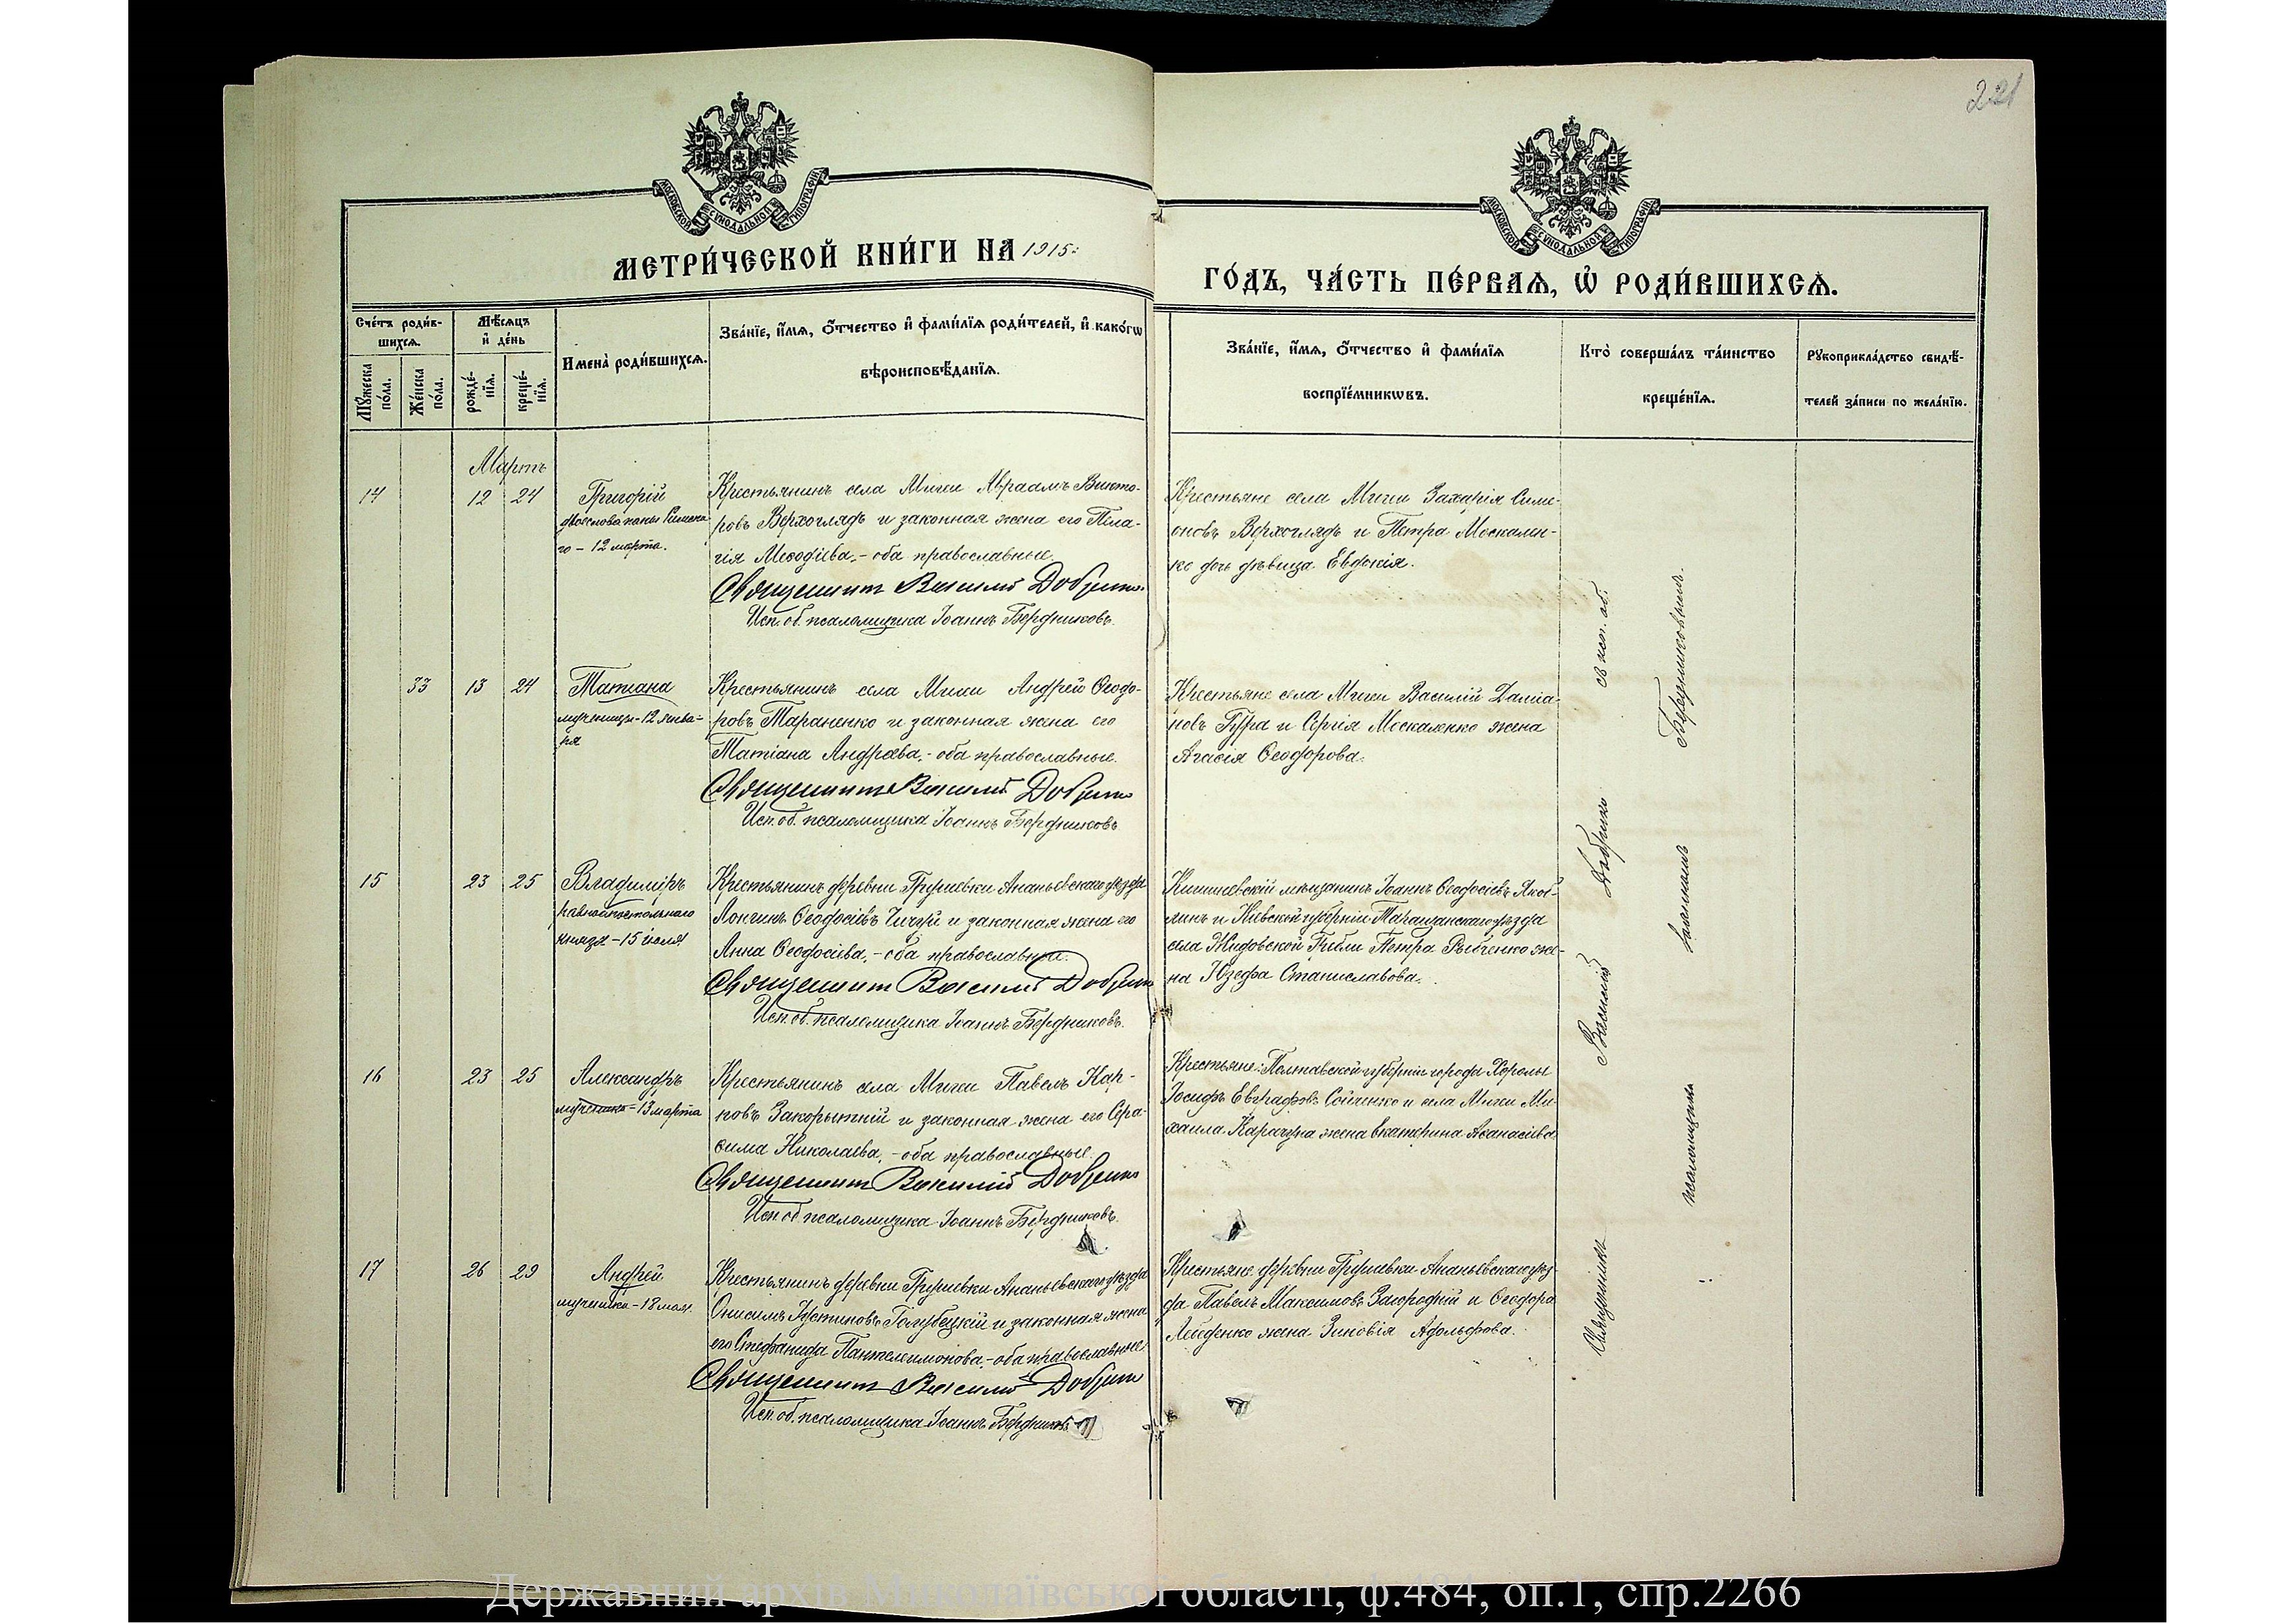 221
МОСКОВСКОЙ СѴНОДАЛЬНОЙ ТИПОГРАФІИ
МОСКОВСКОЙ СѴНОДАЛЬНОЙ ТИПОГРАФІИ
МЕТРИ́ЧЕСКОЙ КНИ́ГИ НА 1915:
ГО́ДЪ, ЧА́СТЬ ПЕ́РВАѦ, Ѡ҆ РОДИ́ВШИХСѦ.
Сче́тъ роди́в-
шихсѧ.
Мꙋ́жеска по́ла.
Же́нска по́ла.
Мѣ́сѧцъ
и҆ де́нь
рожде́-
нїѧ.
креще́-
нїѧ.
И҆мена̀ роди́вшихсѧ.
Зва́нїе, и҆́мѧ, ѻ҆́тчество и҆ фами́лїѧ роди́телей, и҆ како́гѡ
вѣроисповѣ́данїѧ.
Зва́нїе, и҆́мѧ, ѻ҆́тчество и҆ фами́лїѧ
воспрїе́мникѡвъ.
Кто̀ соверша́лъ та́инство
креще́нїѧ.
Рꙋкоприкла́дство свидѣ́-
телей за́писи по жела́нїю.
Мартъ
14 12 24
Григорій
12 марта.
Крестьянинъ села Мигеи Авраамъ Викто-
ровъ Верхоглядъ и законная жена его Пела-
гія Меѳодіева,- оба православные.
Священникъ Василій Добрино
Исп. об. псаломщика Іоаннъ Бердниковъ.
Крестьяне села Мигеи Захарія Симе-
оновъ Верхоглядъ и Петра Москален-
ко дочь дѣвица Евдокія.
33 13 24
Татіана
мученицы - 12 янва-
ря
Крестьянинъ села Мигеи Андрей Ѳеодо-
ровъ Тараненко и законная жена его
Татіана Андреева,- оба православные.
Священникъ Василій Добрино
Исп. об. псаломщика Іоаннъ Бердниковъ
Крестьяне села Мигеи Василій Даміа-
новъ и Сергія Москаленко жена
Агасія Ѳеодорова.
15 23 25
Владиміръ
равноапостольнаго
князя - 15 іюля
Крестьянинъ деревни Грушевки Ананьевскаго уѣзда
Лонгинъ Ѳеодосіевъ и законная жена его
Анна Ѳеодосіева,- оба православные.
Священникъ Василій Добрино
Исп. об. псаломщика Іоаннъ Бердниковъ.
Кишиневскій мѣщанинъ Іоаннъ Ѳеодосіевъ
и Кіевской губерніи Таращанскаго уѣзда
села Жидовской Гребли Петра Рыбченко же-
на Юзефа Станиславова.
16 23 25
Александръ
мученика - 13 марта
Крестьянинъ села Мигеи Павелъ Кар-
повъ Закорытній и законная жена его Сера-
фима Николаева,- оба православные.
Священникъ Василій Добрино
Исп. об. псаломщика Іоаннъ Бердниковъ.
Крестьяне: Полтавской губерніи города Хоролы
Іосифъ Евграфовъ и села Мигеи Ми-
хаила Карачуна жена Екатерина Аѳанасіева
17 26 29
Андрей
мученика - 18 мая.
Крестьянинъ деревни Грушевки Ананьевскаго уѣзда
Онисимъ Іустиновъ Голубецкій и законная жена
его Стефанида Пантелеимонова,- оба православные
Священникъ Василій Добрино
Исп. об. псаломщика Іоаннъ Бердниковъ
Крестьяне деревни Грушевки Ананьевскаго уѣз-
да Павелъ Максимовъ Загородній и Ѳеодора
Лейденко жена Зиновія Адольфова.
Священникъ Василій Добрино съ исп. об.
псаломщика Іоанномъ Бердниковымъ.
Державний архів Миколаївської області, ф.484, оп.1, спр.2266